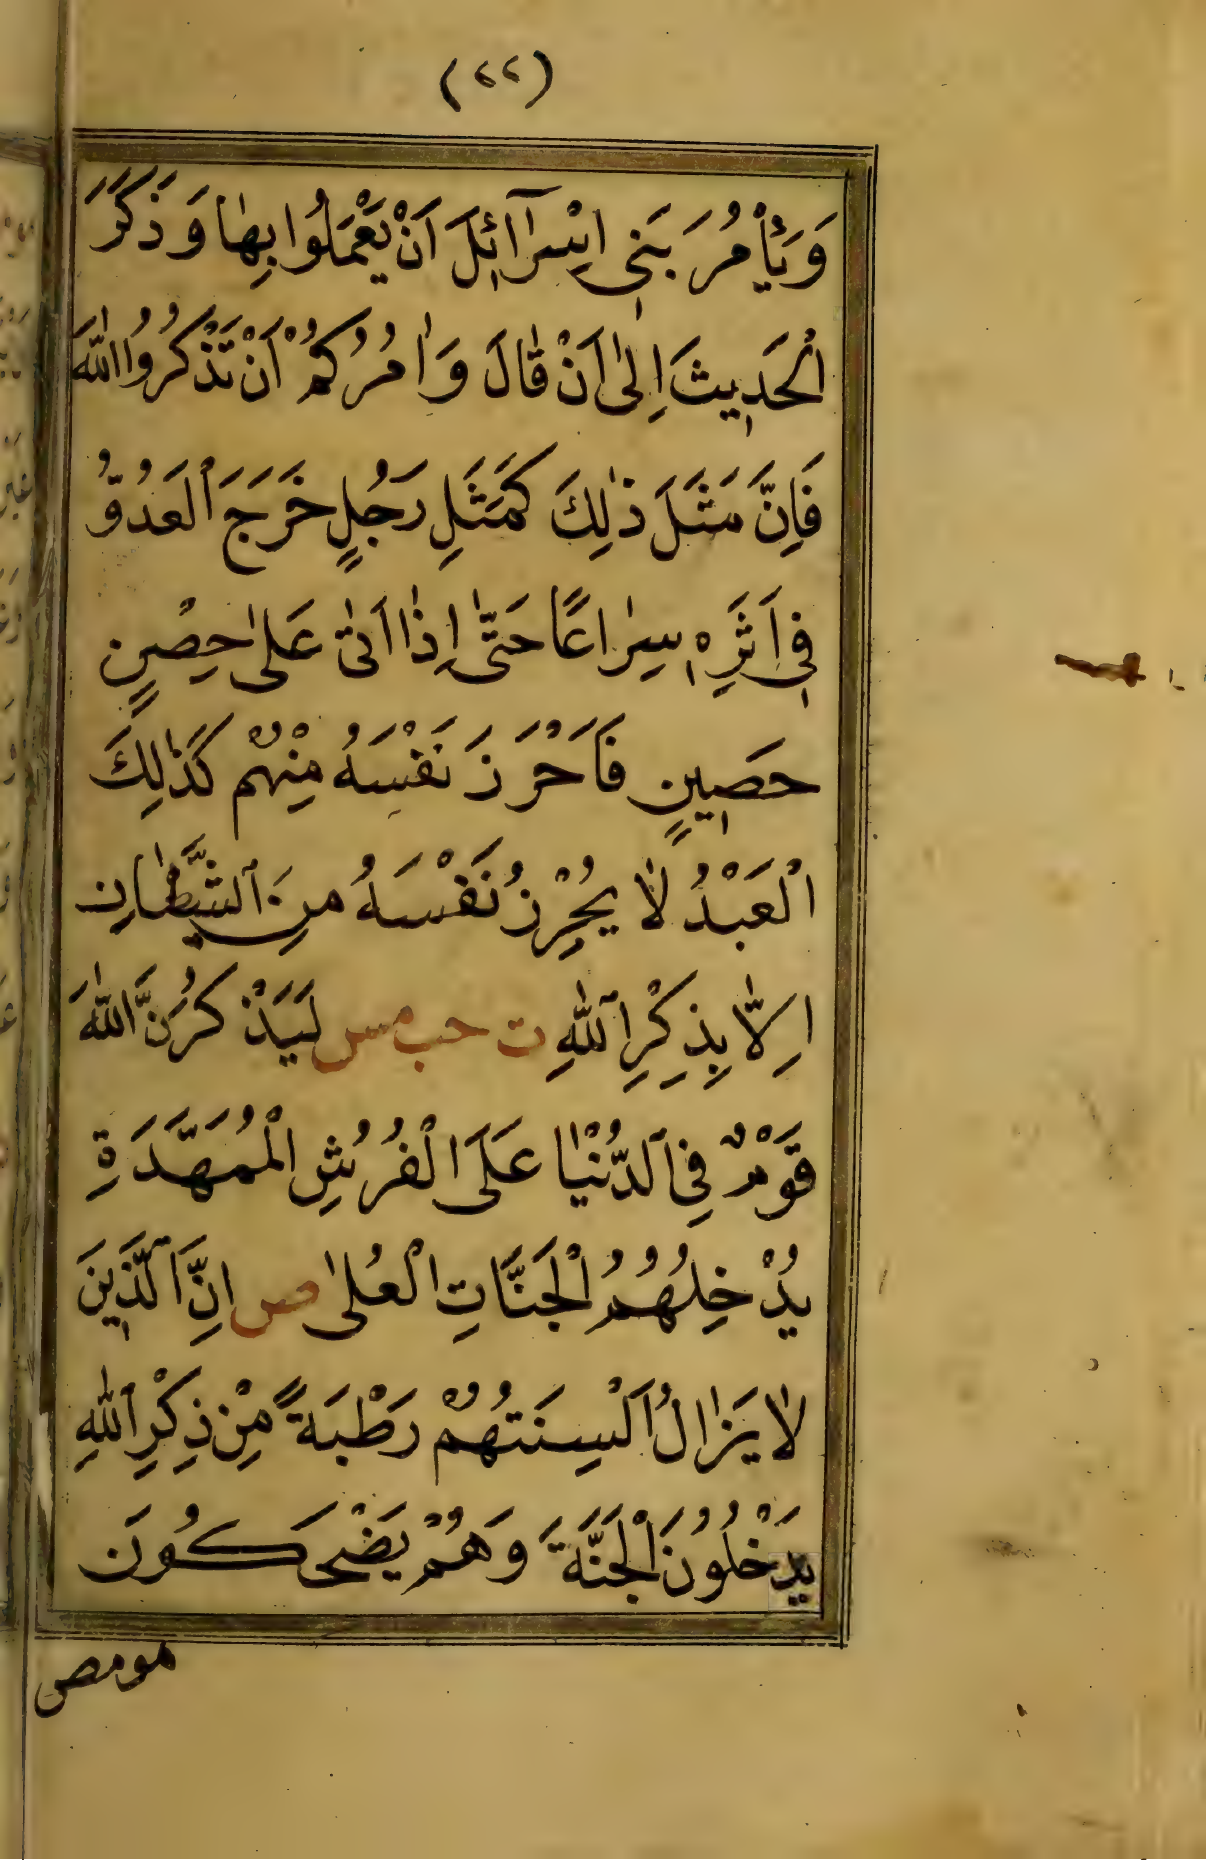 (٢٢)
وَيَأْمُرَ بَنِي اِسْرَآئِلَ اَنْ يَعْمَلُوا بِهَا وَذَكَرَ
الْحَدِيثَ اِلىٰ اَنْ قَالَ وَاٰمُرُكُمْ اَنْ تَذْكُرُوا اللّٰهَ
فَاِنَّ مَثَلَ ذٰلِكَ كَمَثَلِ رَجُلٍ خَرَجَ الْعَدُوُّ
فِي اَثَرِهِ سِرَاعًا حَتّٰى اِذَا اَتٰى عَلىٰ حِصْنٍ
حَصِينٍ فَاَحْرَزَ نَفْسَهُ مِنْهُمْ كَذٰلِكَ
الْعَبْدُ لَا يُحْرِزُ نَفْسَهُ مِنَ الشَّيْطَانِ
اِلَّا بِذِكْرِ اللّٰهِ ت حب مس لَيَذْكُرَنَّ اللّٰهَ
قَوْمٌ فِي الدُّنْيَا عَلَى الْفُرُشِ الْمُمَهَّدَةِ
يُدْخِلُهُمُ الْجَنَّاتِ الْعُلىٰ ص اِنَّ الَّذِينَ
لَا يَزَالُ اَلْسِنَتُهُمْ رَطْبَةً مِنْ ذِكْرِ اللّٰهِ
يَدْخُلُونَ الْجَنَّةَ وَهُمْ يَضْحَكُونَ
مومص